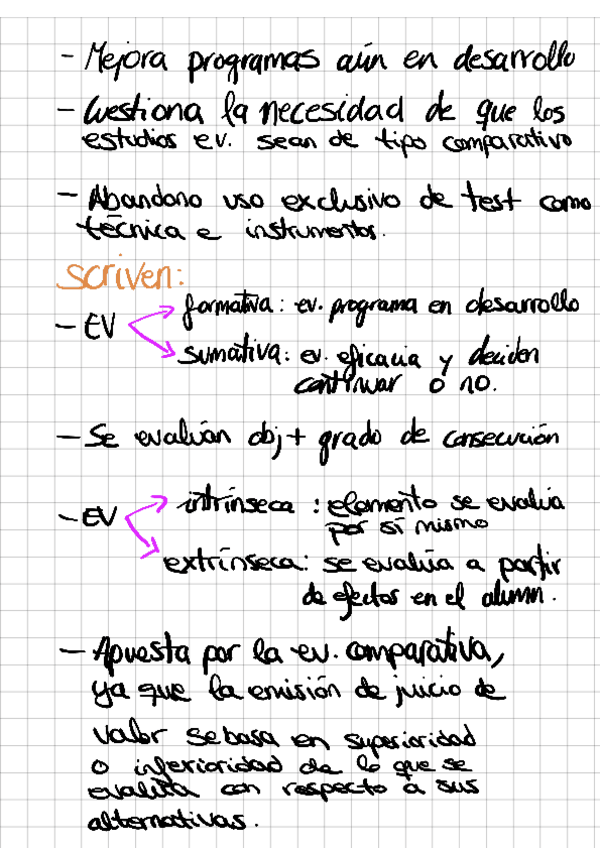 - Mejora programas aún en desarrollo
- Cuestiona la necesidad de que los
estudios ev. sean de tipo comparativo
- Abandono uso exclusivo de test como
técnica e instrumentos.
Scriven:
- EV
formativa: ev. programa en desarrollo
sumativa: ev. eficacia y deciden
continuar o no.
- Se evalúan obj + grado de consecución
- EV
intrínseca : elemento se evalúa
por sí mismo
extrínseca: se evalúa a partir
de efectos en el alumn.
- Apuesta por la ev. comparativa,
ya que la emisión de juicio de
valor se basa en superioridad
o inferioridad de lo que se
evalúa con respecto a sus
alternativas.